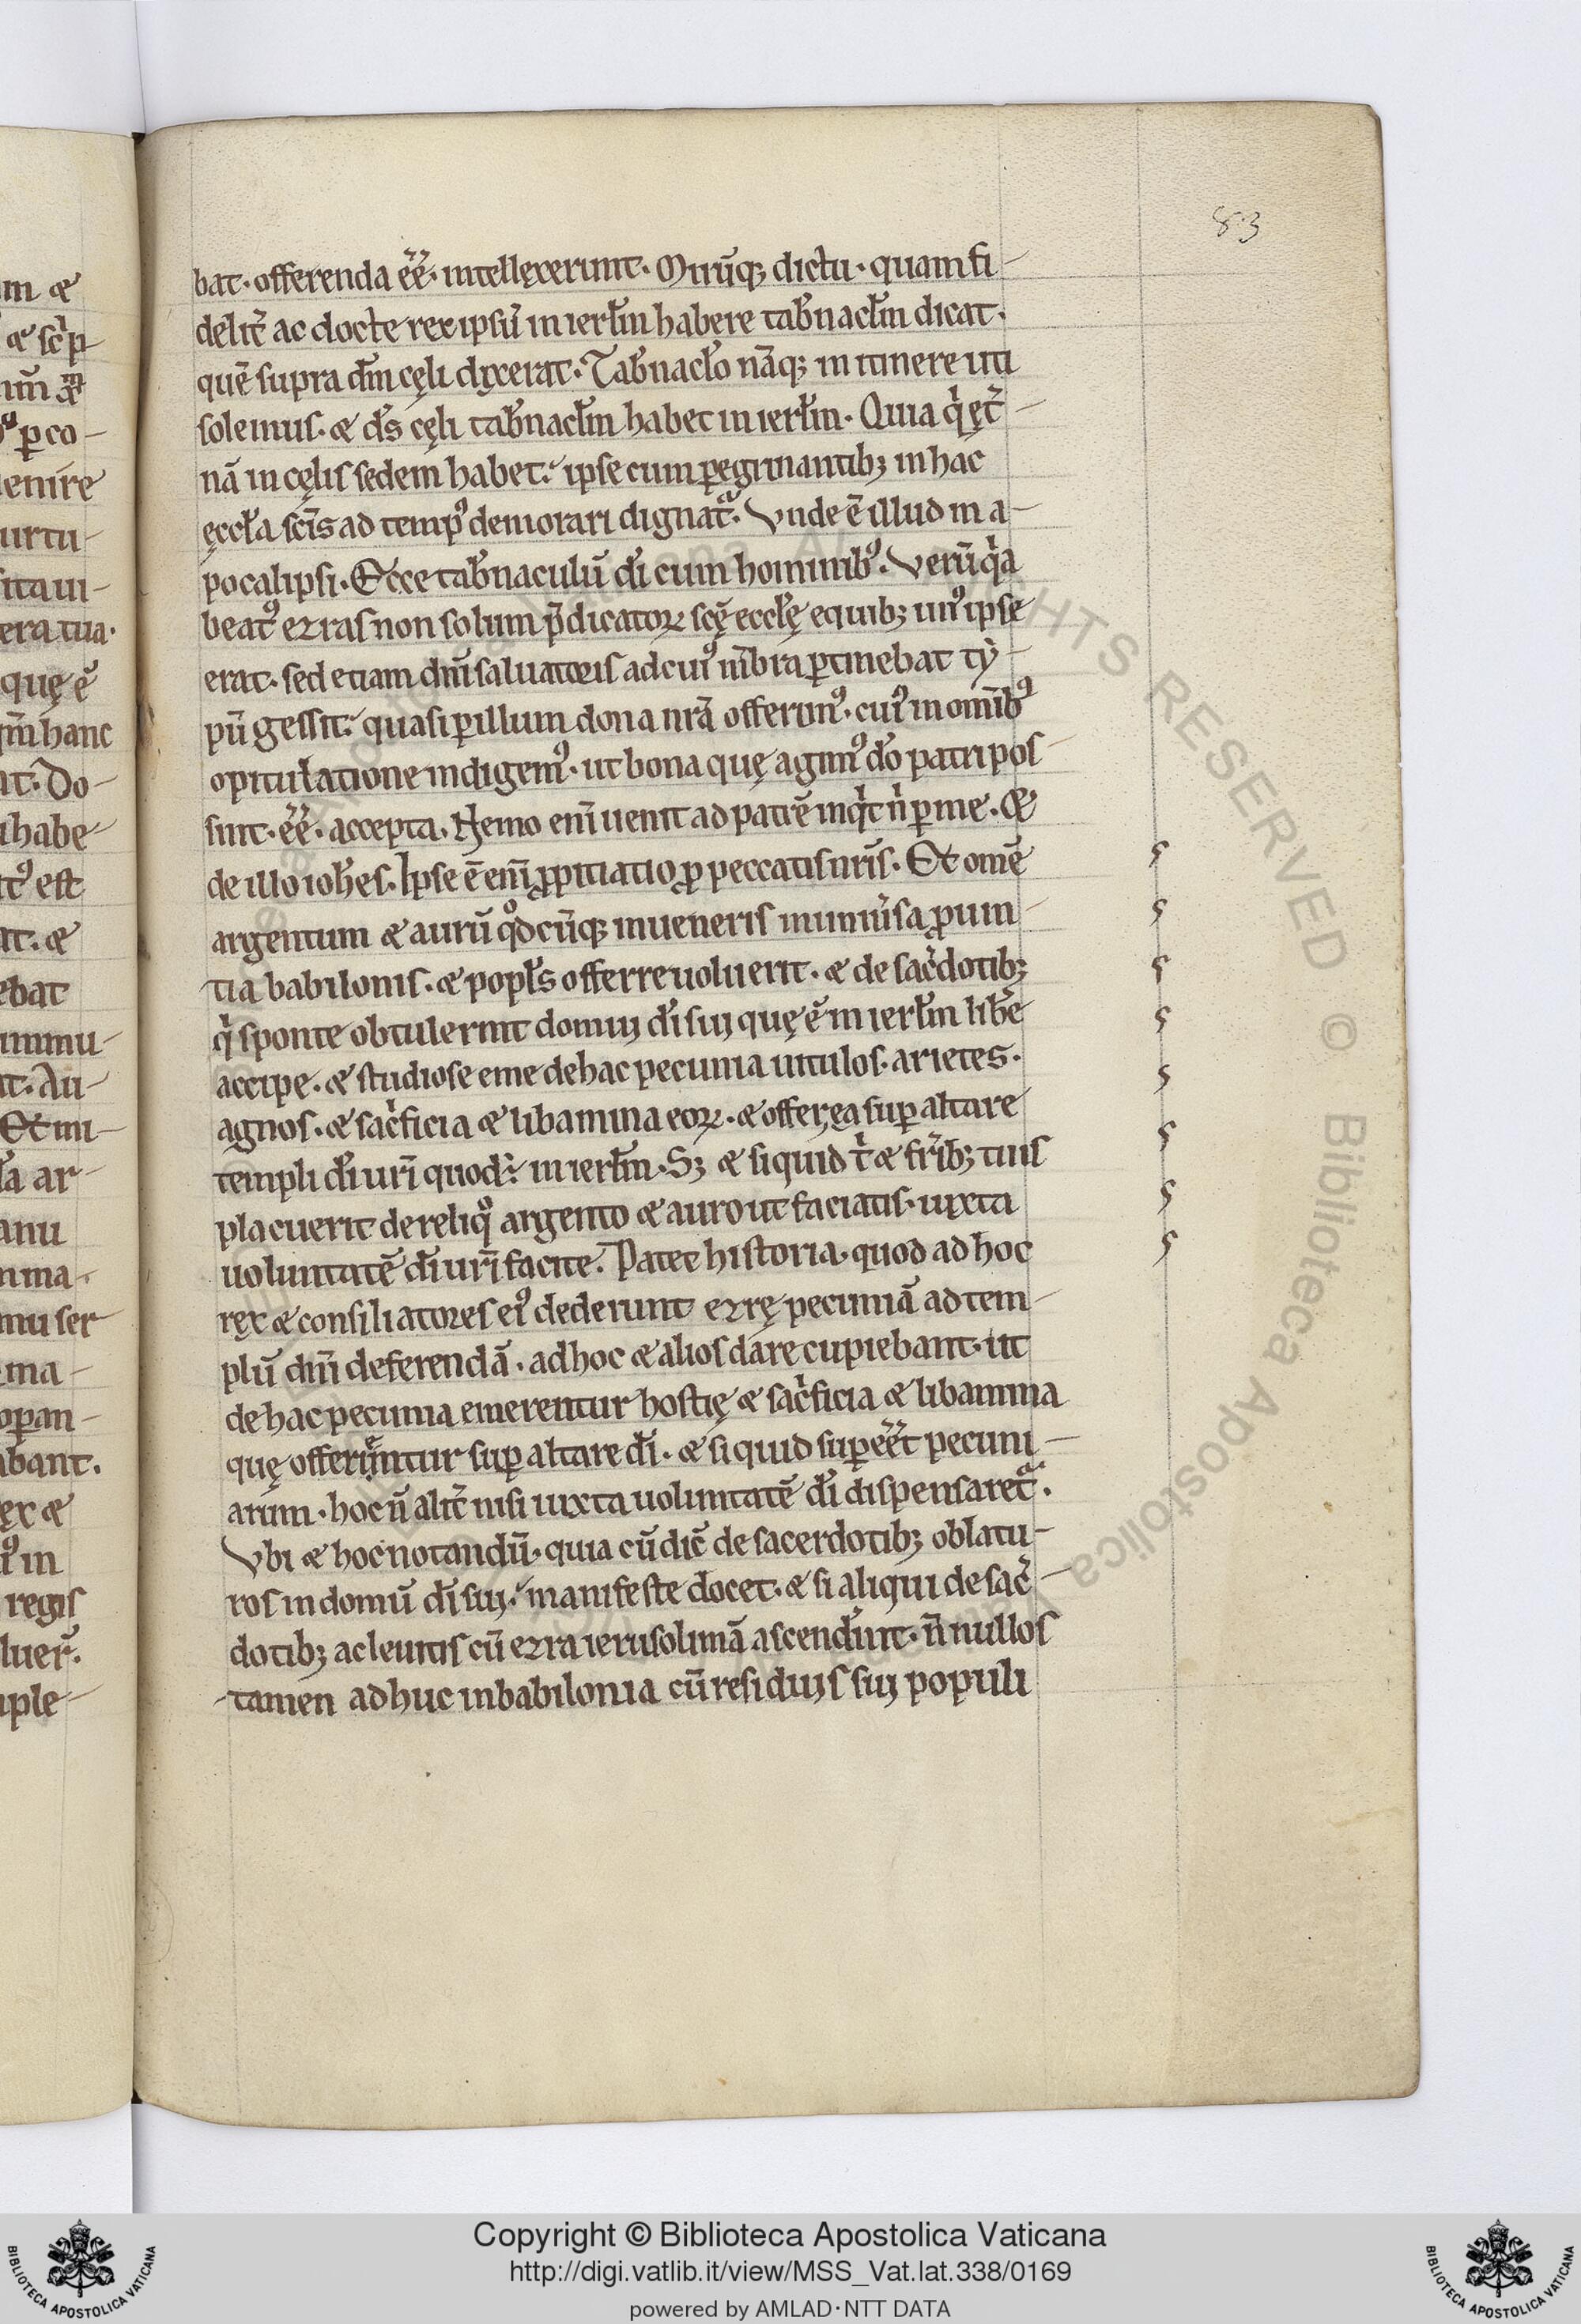 83
bat· offerenda ee̅· intellexerunt· Miru̅q; dictu· quam fi-
delit̅ ac docte rex ipsu̅ in ierl̅m habere tab̅nacl̅m dicat·
que̅ supra dm̅ cęli dixerat· Tab̅nacl̅o na̅q; in itinere uti
solemus· & ds̅ cęli tab̅nacl̅m habet in ierl̅m· Quia qi ęt̅-
na̅ in cęlis sedem habet: ipse cum p̲egrinantib; in hac
ęccl̅a scīs ad tempꝰ demorari dignat̅· Vnde e̅ illud in a-
pocalipsi· Ecce tab̅naculu̅ di̅ cum hominibꝰ· Veru̅ qia
beatꝰ ezras non solum p̅dicatoꝝ scę̅ eccl̅ę e quib; unꝰ ipse
erat· sed etiam dn̅i saluatoris ad cuiꝰ m̅bra p̲tinebat ty-
pu̅ gessit: quasi p̲ illum dona nr̅a offerimꝰ· cuiꝰ in omib̅ꝰ
opitulatione indigemꝰ· ut bona quę agimꝰ do̅ patri pos-
sint· ee̅· accepta· Nemo eni̅ uenit ad patre̅ inqit ni p̲ me· &
de illo ioh̅es· Ipse e̅ eni̅ ꝓpitiatio ꝓ peccatis nr̅is· Et ome̅
argentum & auru̅ qdocu̅q; inueneris in uniu̅sa ꝓuin-
tia babilonis· & popl̅s offerre uoluerit· & de sac̅dotib;
qi sponte obtulerint domui di̅ sui quę e̅ in ierl̅m lib̅e
accipe· & studiose eme de hac pecunia uitulos· arietes·
agnos· & sac̅ficia & libamina eoꝝ· & offer ea sup̲ altare
templi di̅ uri̅ quod ÷ in ierl̅m· S; & siquid ti & fr̅ib; tuis
placuerit de reliqo argento & auro ut faciatis· iuxta
uoluntate̅ di̅ uri̅ facite· Patet historia· quod ad hoc
rex & consiliatores eiꝰ dederunt ezrę pecunia̅ ad tem-
plu̅ dn̅i deferenda̅· ad hoc & alios dare cupiebant· ut
de hac pecunia emerentur hostię & sac̅ficia & libamina
quę offerrentur sup̲ altare di̅· & siquid sup̲ee̅t pecuni-
arum· hoc n̅ alit̅ nisi iuxta uoluntate̅ di̅ dispensaret̅·
Vbi & hoc notandu̅· quia cu̅ dic̅ de sacerdotib; oblatu-
ros in domu̅ di̅ sui: manifeste docet· & si aliqui de sac̅-
dotib; ac leuitis cu̅ ezra ierusolima̅ ascend̅unt· n̅ nullos
tamen adhuc in babilonia cu̅ residuis sui populi
Copyright © Biblioteca Apostolica Vaticana
http://digi.vatlib.it/view/MSS_Vat.lat.338/0169
powered by AMLAD·NTT DATA